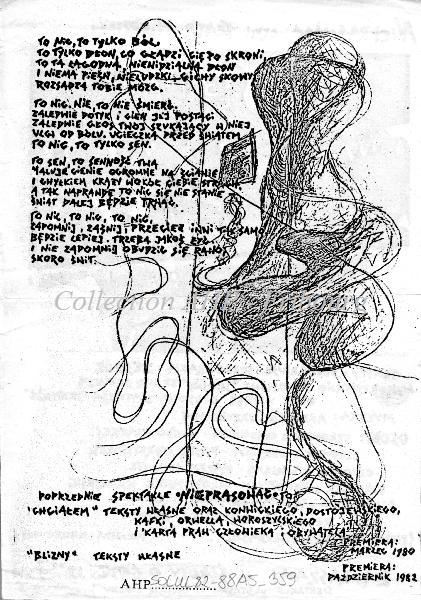 TO NIC, TO TYLKO BÓL.
TO TYLKO DŁOŃ, CO GŁADZI CIĘ PO SKRONI,
TO TA ŁAGODNA, NIEWIDZIALNA DŁOŃ
I NIEMA PIEŚŃ, NIELUDZKI, CICHY SKOWYT
ROZSADZA TOBIE MÓZG.
TO NIC, NIE, TO NIE ŚMIERĆ.
ZALEDWIE DOTYK I CIEŃ JEJ POSTACI
ZALEDWIE GŁOS TWÓJ SZUKAJĄCY W NIEJ
ULGI OD BÓLU. UCIECZKA PRZED ŚWIATEM
TO NIC, TO TYLKO SEN.
TO SEN, TO SENNOŚĆ TWA
MALUJE CIENIE OGROMNE NA ŚCIANIE
I CHYŁKIEM KRĄŻY WOKÓŁ CIEBIE STRACH
A TAK NAPRAWDĘ TO NIC SIĘ NIE STANIE
ŚWIAT DALEJ BĘDZIE TRWAĆ.
TO NIC, TO NIC, TO NIC,
ZAPOMNIJ, ZAŚNIJ, PRZECIEŻ INNI TAK SAMO
BĘDZIE LEPIEJ. TRZEBA JAKOŚ ŻYĆ
I NIE ZAPOMNIJ OBUDZIĆ SIĘ RANO
SKORO ŚWIT.
Collection
POPRZEDNIE SPEKTAKLE
"CHCIAŁEM" TEKSTY WŁASNE ORAZ KONWICKIEGO, DOSTOJEWSKIEGO,
KAFKI, ORWELLA, WOROSZYLSKIEGO
I "KARTA PRAW CZŁOWIEKA I OBYWATELA"
PREMIERA:
MARZEC 1980
"BLIZNY" TEKSTY WŁASNE
PREMIERA:
PAŹDZIERNIK 1982
AHP 22-88A5_359